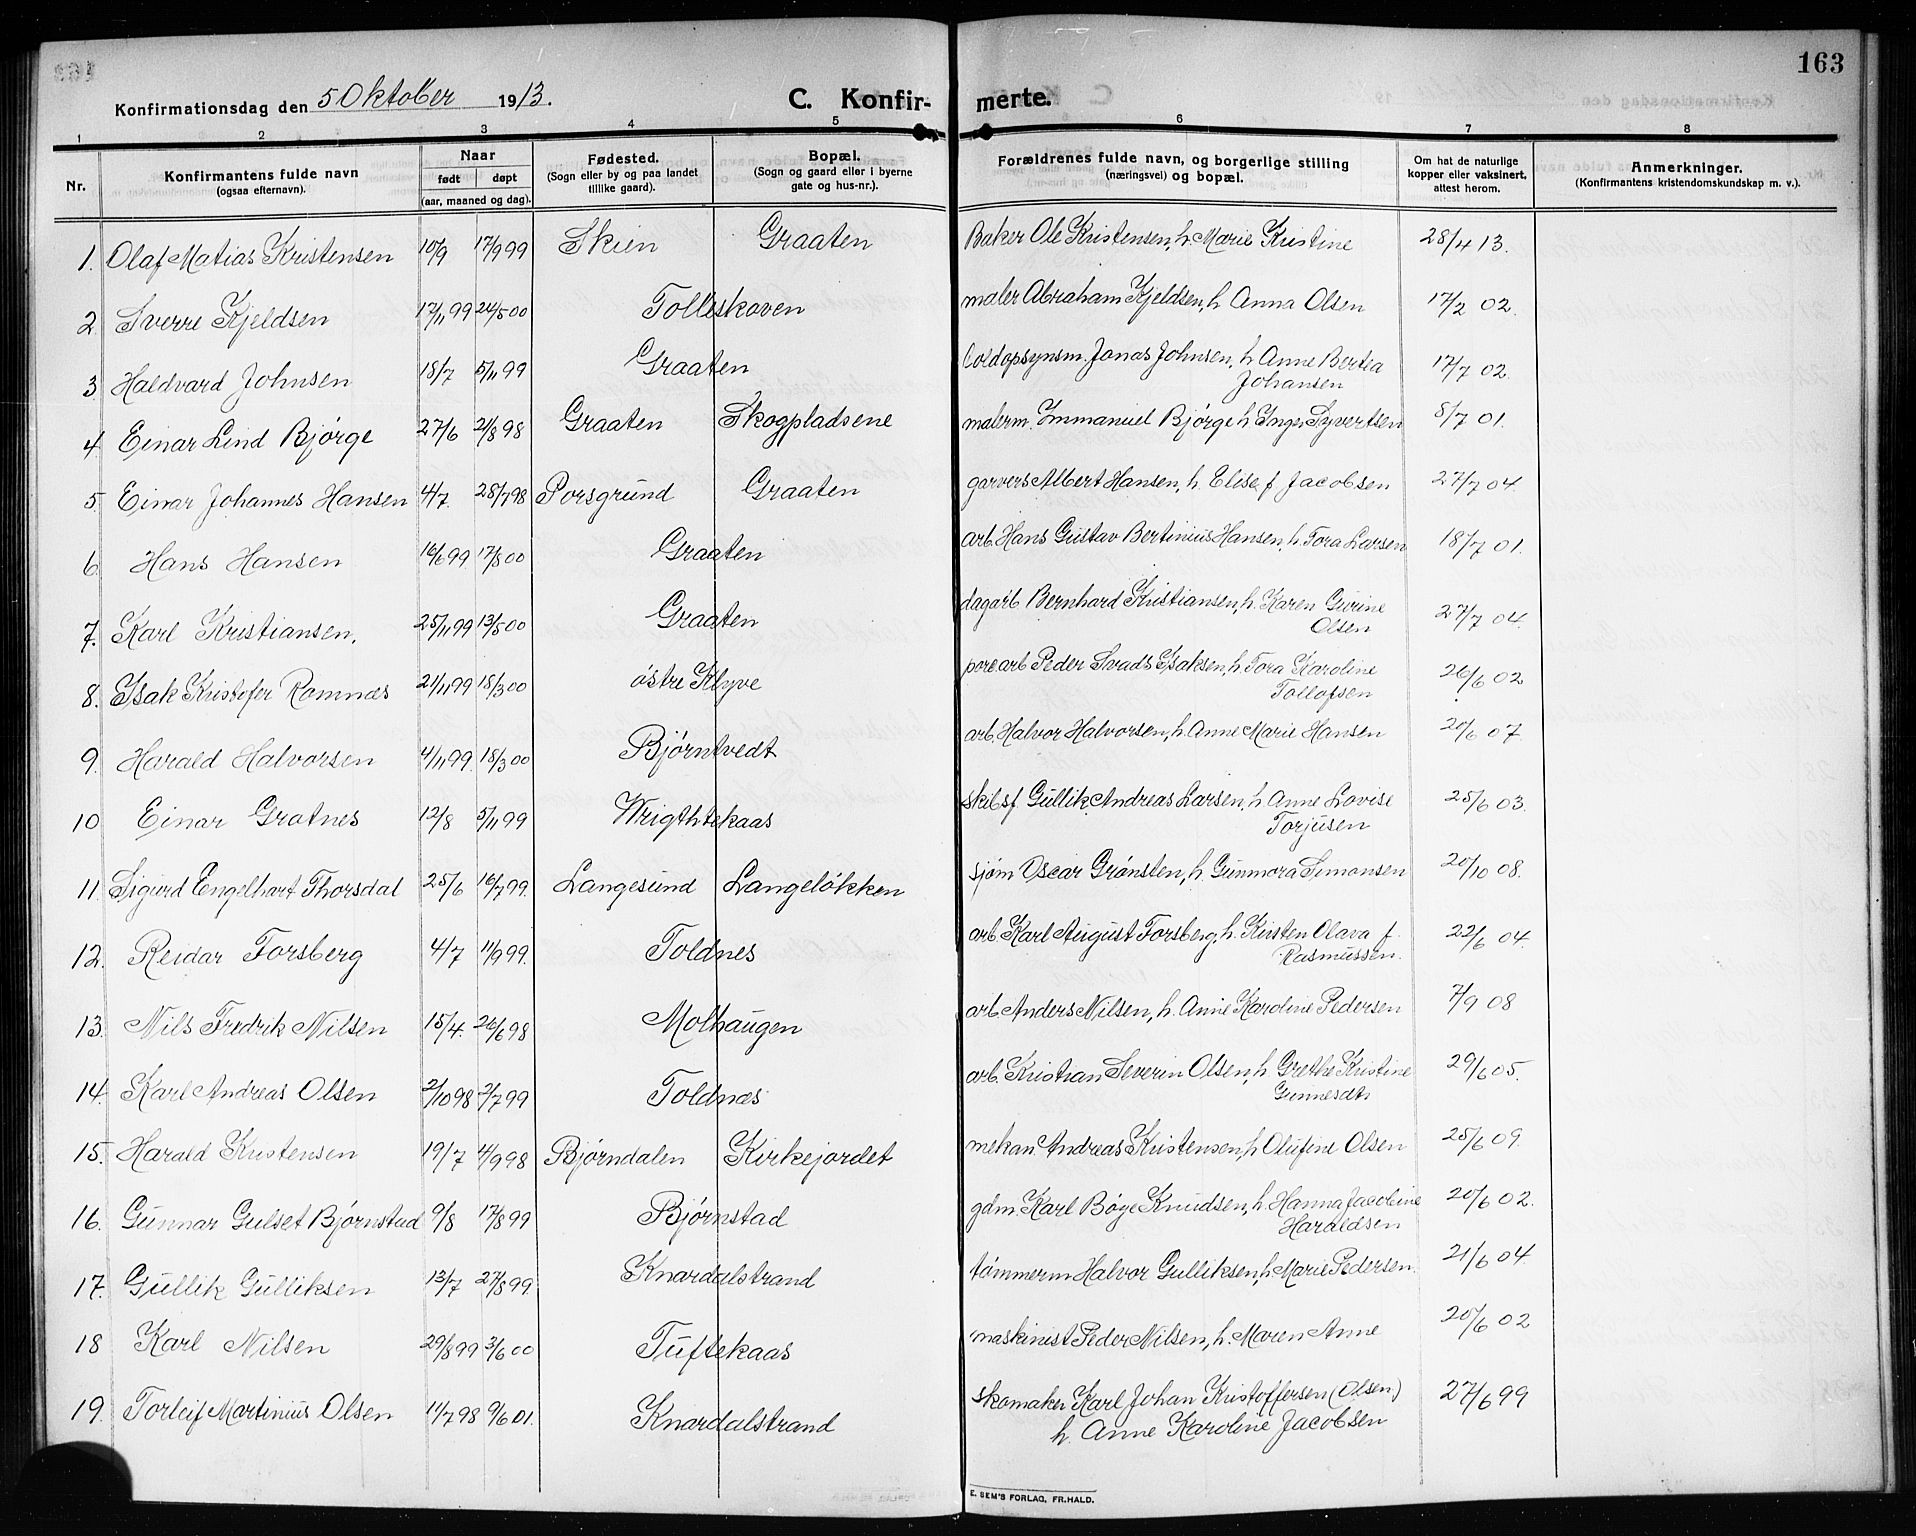 163
Konfirmationsdag den 5 Oktober 1913.
C. Konfirmerte.
1 2 3 4 5 6 7 8
Nr.
Konfirmantens fulde navn
(ogsaa efternavn).
Naar
født døpt
(aar, maaned og dag).
Fødested.
(Sogn eller by og paa landet
tillike gaard).
Bopæl.
(Sogn og gaard eller i byerne
gate og hus-nr.).
Forældrenes fulde navn, og borgerlige stilling
(næringsvei) og bopæl.
Om hat de naturlige
kopper eller vaksinert,
attest herom.
Anmerkninger.
(Konfirmantens kristendomskundskap m. v.).
1. Olaf Matias Kristensen 10/9 17/9 99 Skien Graaten Baker Ole Kristensen, h. Marie Kristine 28/4 13.
2 Sverre Kjeldsen 17/11 99 24/5 00 Tolleskoven maler Abraham Kjeldsen, h Anna Olsen 17/2 02.
3 Haldvard Johnsen 18/7 5/11 99 Graaten toldopsynsm. Jonas Johnsen, h Anne Bertea
Johansen 17/7 02.
4 Einar Lind Bjørge 27/6 21/8 98 Graaten Skogpladsene malerm. Immanuel Bjørge h Inger Syvertsen 8/7 01.
5 Einar Johannes Hansen 4/7. 28/7 98 Porsgrund Graaten garvers Albert Hansen, h. Elise f Jacobsen 27/7 04.
6 Hans Hansen 16/6 99 17/8 00 Graaten arb. Hans Gustav Bertinius Hansen, h. Tora Larsen 18/7 01.
7. Karl Kristiansen. 25/11 99 13/5 00 Graaten dagarb Bernhard Kristiansen, h. Karen Gurine
Olsen 27/7 04.
8. Isak Kristofer Romnæs 21/11 99 18/3 00 østre Klyve porc arb Peder Svads Isaksen, h. Tora Karoline
Tollofsen 26/6 02
9. Harald Halvorsen 4/11 99. 18/3 00 Bjørntvedt arb. Halvor Halvorsen, h. Anne Marie Hansen 20/6 07.
10 Einar Grotnes 12/8 5/11 99 Wrigthtekaas skibsf. Gullik Andreas Larsen, h Anne Lovise
Torjusen 25/6 03.
11. Sigurd Engelhart Thorsdal 25/6 16/7 99. Langesund Langeløkken sjøm Oscar Grønsten, h Gunmora Simonsen 20/10 08.
12. Reidar Forsberg 4/7 11/9 99. Toldnes arb. Karl August Forsberg, h. Kirsten Olava f
Rasmussen. 22/6 04.
13. Nils Fredrik Nilsen 15/4. 26/6 98 Molhaugen arb. Anders Nilsen, h. Anne Karoline Pedersen 7/9 08
14. Karl Andreas Olsen 2/10 98 2/7 99 Toldnæs arb. Kristian Severin Olsen, h Grethe Kristine
29/6 05.
15. Harald Kristensen 19/7 4/9 98 Bjørndalen Kirkejordet mekan Andreas Kristensen, h Olufine Olsen 25/6 09.
16. Gunnar Gulset Bjørnstad 9/8 17/8 99 Bjørnstad gdm. Karl Bøye Knudsen, h. Hanna Jacobine
Haraldsen 20/6 02.
17. Gullik Gulliksen 13/7 27/8 99. Knardalstrand tømmerm Halvor Gulliksen, h Marie Pedersen. 21/6 04.
18 Karl Nilsen 29/8 99 3/6 00 Tuftekaas maskinist Peder Nilsen, h. Maren Anne 20/6 02
19. Torleif Martinius Olsen 11/7 98 9/6 01. Knardalstrand skomaker Karl Johan Kristoffersen (Olsen)
h. Anne Karoline Jacobsen 27/6 99
E. SEM'S FORLAG, FR.HALD.